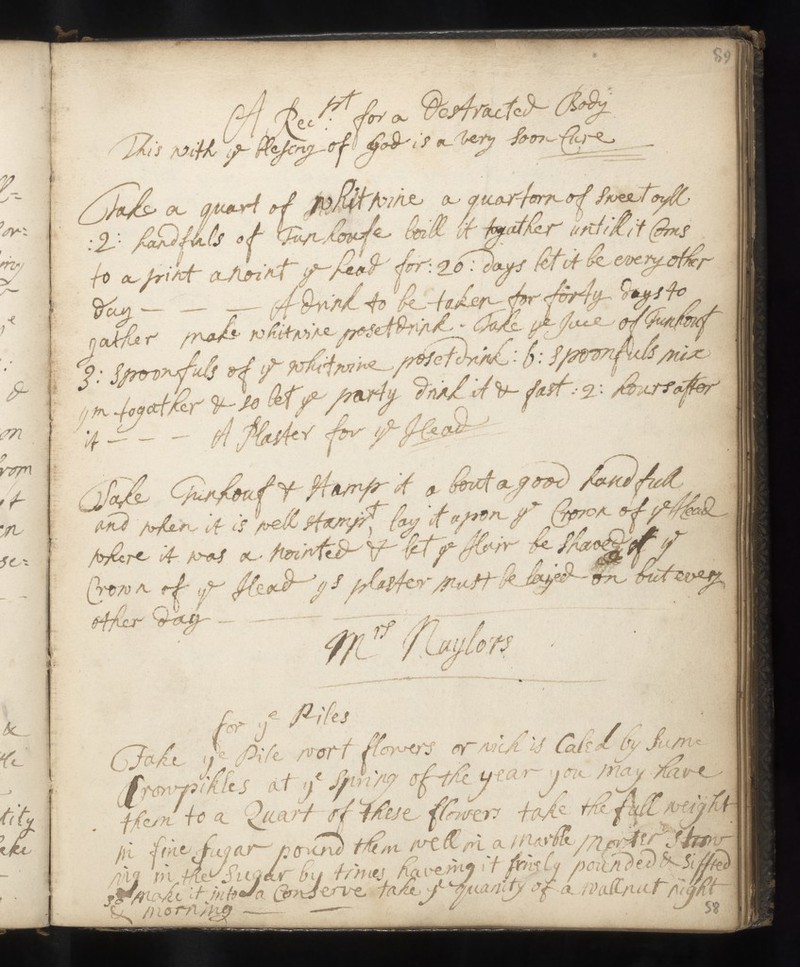 89
A Rec:pt for a Destracted Body
This with ye blesing of God is a very Soon Cure
Take a quart of whitwine a quartorn of Sweet oyll
:2: handfuls of Tunhoufe boill it togather untill it Coms
to a pint anoint ye head for :20: days let it be every other
day — — — A drink to be taken for forty days to
gather make whitwine poset drink - Take ye Juce of Tunhouf
3: spoonfuls of ye whitwine poset drink :6: spoonfuls mix
ym togather & so let ye party drink it & fast :2: hours after
it — — — A Plaster for ye Head
Take Tunhouf & Stamp it a bout a good handfull
and when it is well stampt lay it upon ye Crown of ye Head
where it was a nointed & let ye Hair be Shaved of ye
Crown of ye Head ys plaster must be layed on but every
other day
Mrs Naylors
for ye Piles
Take ye Pile wort flowers or wich is Caled by Sume
Crowpikles at ye Spring of the year you may have
them to a Quart of these flowers take the full weight
in fine sugar pound them well in a marble Morter Strow
ing in the Sugar by times haveing it finely pounded & Siffted
so make it into a Conserve take ye quanity of a wallnut night
& morning — —
58